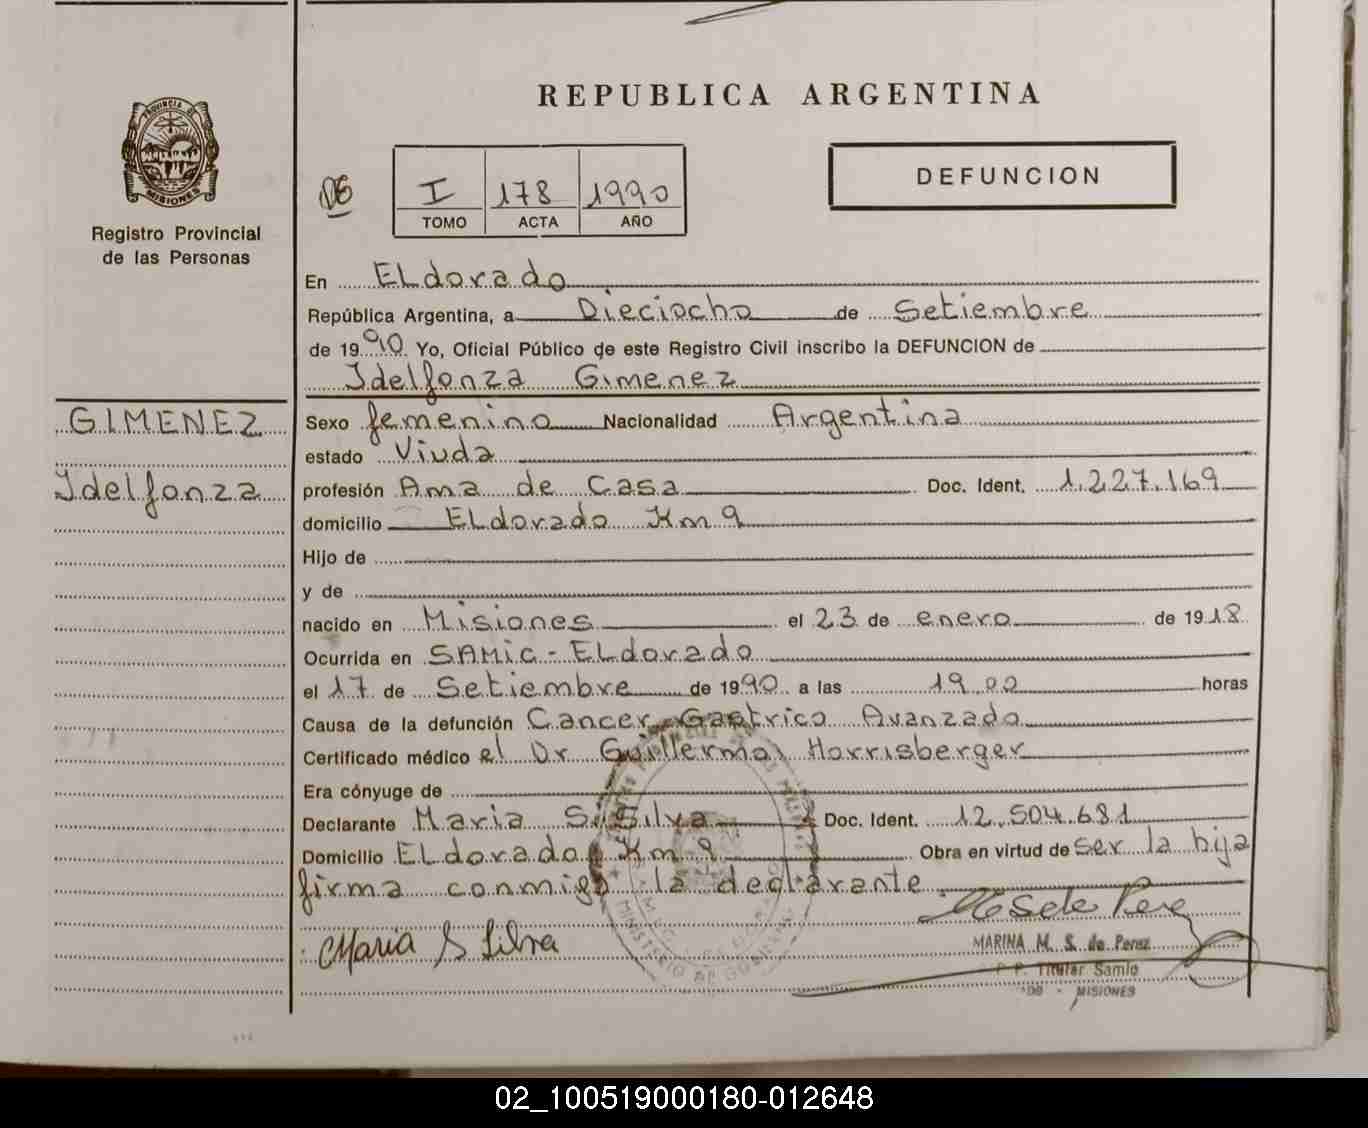 REPUBLICA ARGENTINA
PROVINCIA DE
MISIONES
Registro Provincial
de las Personas
D6
I 178 1990
TOMO ACTA AÑO
DEFUNCION
En ELdorado
República Argentina, a Dieciocho de Setiembre
de 1990 Yo, Oficial Público de este Registro Civil inscribo la DEFUNCION de
Idelfonza Gimenez
GIMENEZ
Idelfonza
Sexo femenino Nacionalidad Argentina
estado Viuda
profesión Ama de Casa Doc. Ident. 1.227.169
domicilio ELdorado Km 9
Hijo de
y de
nacido en Misiones el 23 de enero de 1918
Ocurrida en SAMIC - ELdorado
el 17 de Setiembre de 1990 a las 19.00 horas
Causa de la defunción Cancer Gastrico Avanzado
Certificado médico el Dr Guillermo Horrisberger
Era cónyuge de
Declarante Maria S. Silva Doc. Ident. 12.504.681
Domicilio ELdorado Km 9 Obra en virtud de ser la hija
firma conmigo la declarante
Maria S Silva
MARINA M. S. de Perez
Titular Samic
MISIONES
MINISTERIO DE GOBIERNO
02_100519000180-012648